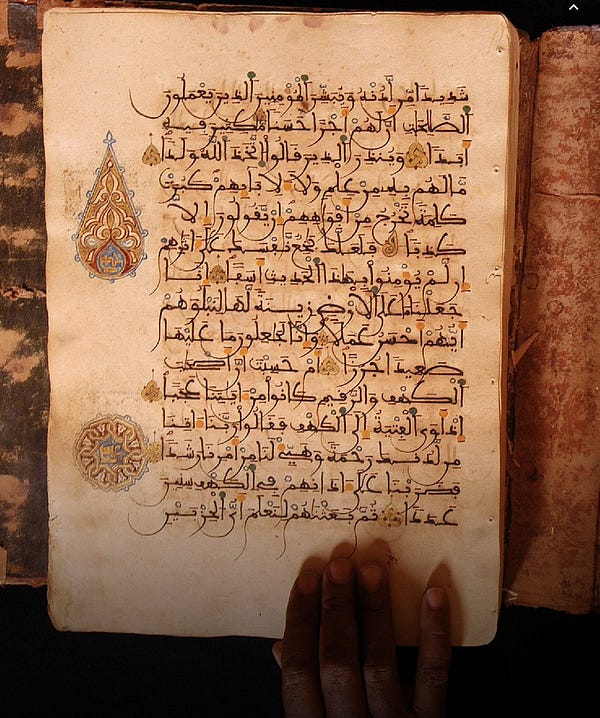 شديدا من لدنه ويبشر المؤمنين الذين يعملون
الصلحت ان لهم اجرا حسنا مكثين فيه
ابدا وينذر الذين قالوا اتخذ الله ولدا
ما لهم به من علم ولا لابايهم كبرت
كلمة تخرج من افوههم ان يقولون الا
كذبا فلعلك بخع نفسك على اثرهم
ان لم يومنوا بهذا الحديث اسفا انا
جعلنا ما على الارض زينة لها لنبلوهم
ايهم احسن عملا وانا لجعلون ما عليها
صعيدا جرزا ام حسبت ان اصحب
الكهف والرقيم كانوا من ايتنا عجبا
اذ اوى الفتية الى الكهف فقالوا ربنا اتنا
من لدنك رحمة وهيئ لنا من امرنا رشدا
فضربنا على اذانهم في الكهف سنين
عددا ثم بعثنهم لنعلم اي الحزبين